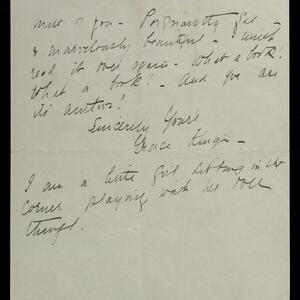 of you - Poignantly
& marvelously beautiful -
read it over again - What a book!
What a book! - And you are
its author!
Sincerely Yours
Grace King -
I am a little girl sitting in the
corner playing with her doll
things.